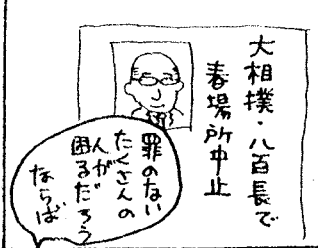 大相撲・八百長で
春場所中止
罪のない
たくさんの
人が
困るだろう
ならば